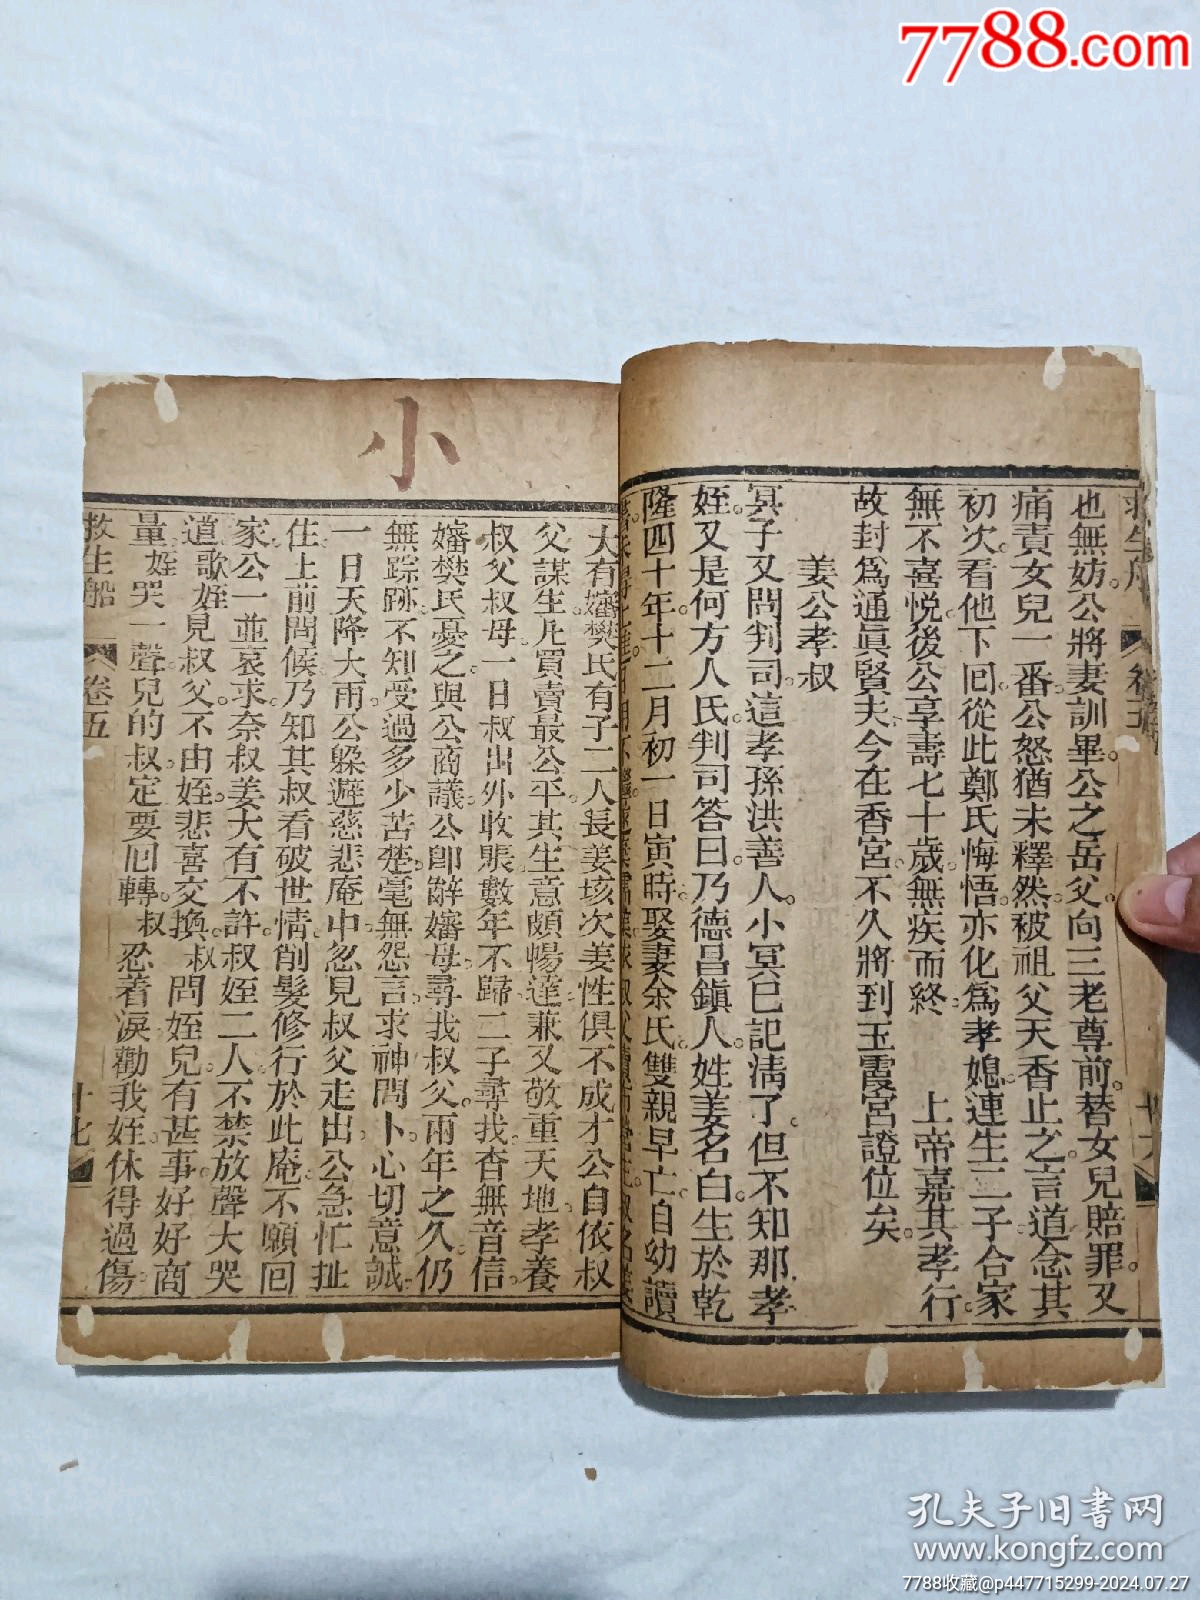 7788.com
救生船
卷五
也無妨公將妻訓畢公之岳父向三老尊前替女兒賠罪又
痛責女兒一番公怒猶未釋然被祖父天香止之言道念其
初次看他下囘從此鄭氏悔悟亦化爲孝媳連生三子合家
無不喜悅後公享壽七十歲無疾而終 上帝嘉其孝行
故封爲通眞賢夫今在香宮不久將到玉霞宮證位矣
姜公孝叔
冥子又問判司這孝孫洪善人小冥巳記淸了但不知那孝
姪又是何方人氏判司答曰乃德昌鎮人姓姜名白生於乾
隆四十年十二月初一日寅時娶妻余氏雙親早亡自幼讀
小
大有嬸樊氏有子二人長姜垓次姜性俱不成才公自依叔
父謀生凡買賣最公平其生意頗暢達兼又敬重天地孝養
叔父叔母一日叔出外收賬數年不歸二子尋找杳無音信
嬸樊氏憂之與公商議公卽辭嬸母尋我叔父兩年之久仍
無踪跡不知受過多少苦楚毫無怨言求神問卜心切意誠
一日天降大雨公躲避慈悲庵中忽見叔父走出公急忙扯
住上前問候乃知其叔看破世情削髮修行於此庵不願囘
家公一並哀求奈叔姜大有不許叔姪二人不禁放聲大哭
道歌姪見叔父不由姪悲喜交換叔問姪兒有甚事好好商
量姪哭一聲兒的叔定要囘轉叔忍着淚勸我姪休得過傷
救生船
卷五
十七
孔夫子旧书网
www.kongfz.com
7788收藏@p447715299-2024.07.27